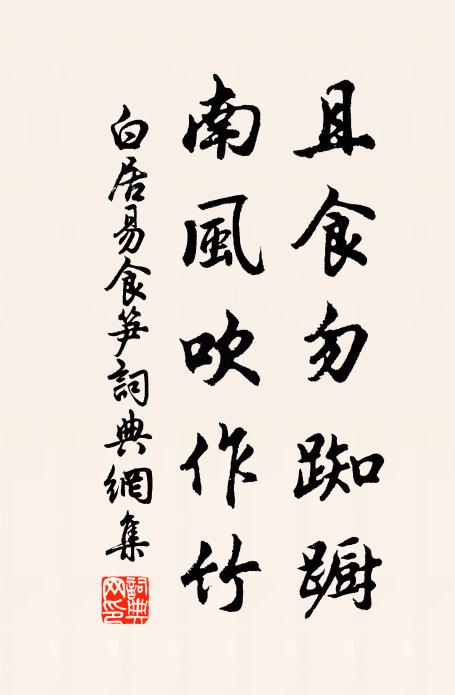 且食勿踟蹰
南風吹作竹
白居易食笋詞典網集
詞典网印